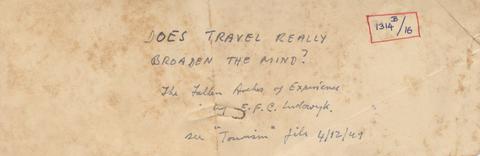 1314 B/16
DOES TRAVEL REALLY
BROADEN THE MIND?
The Fallen Arches of Experience
by E.F.C. Ludowyk.
see "Tourism" file 4/12/49